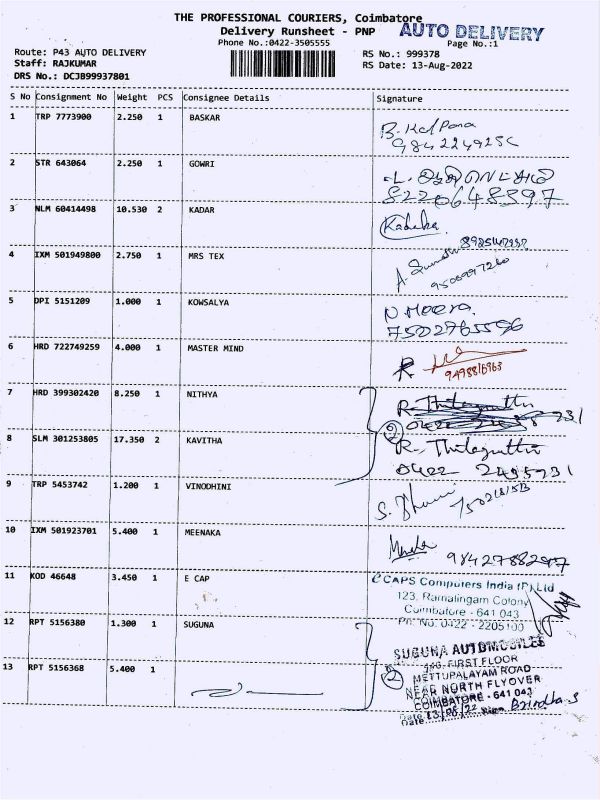 THE PROFESSIONAL COURIERS, Coimbatore
Delivery Runsheet - PNP
AUTO DELIVERY
Phone No.:0422-3505555
Page No.:1
Route: P43 AUTO DELIVERY
RS No.: 999378
Staff: RAJKUMAR
RS Date: 13-Aug-2022
DRS No.: DCJB99937801
S No Consignment No Weight PCS Consignee Details Signature
1 TRP 7773900 2.250 1 BASKAR
B. Kalpana
2 STR 643064 2.250 1 GOWRI
8220648597
3 NLM 60414498 10.530 2 KADAR
4 IXM 501949800 2.750 1 MRS TEX
5 DPI 5151209 1.000 1 KOWSALYA
N. Meera
7502765596
6 HRD 722749259 4.000 1 MASTER MIND
7 HRD 399302420 8.250 1 NITHYA
8 SLM 301253805 17.350 2 KAVITHA
2
0422 2495731
9 TRP 5453742 1.200 1 VINODHINI
10 IXM 501923701 5.400 1 MEENAKA
11 KOD 46648 3.450 1 E CAP
eCAPS Computers India (P) Ltd
123, Ramalingam Colony
Coimbatore - 641 043
Ph. No. 0422 - 2205100
12 RPT 5156380 1.300 1 SUGUNA
SUGUNA AUTOMOBILES
FIRST FLOOR
13 RPT 5156368 5.400 1
2
METTUPALAYAM ROAD
NEAR NORTH FLYOVER
COIMBATORE - 641 043
Date 13/08/22 Sign Brindha.S